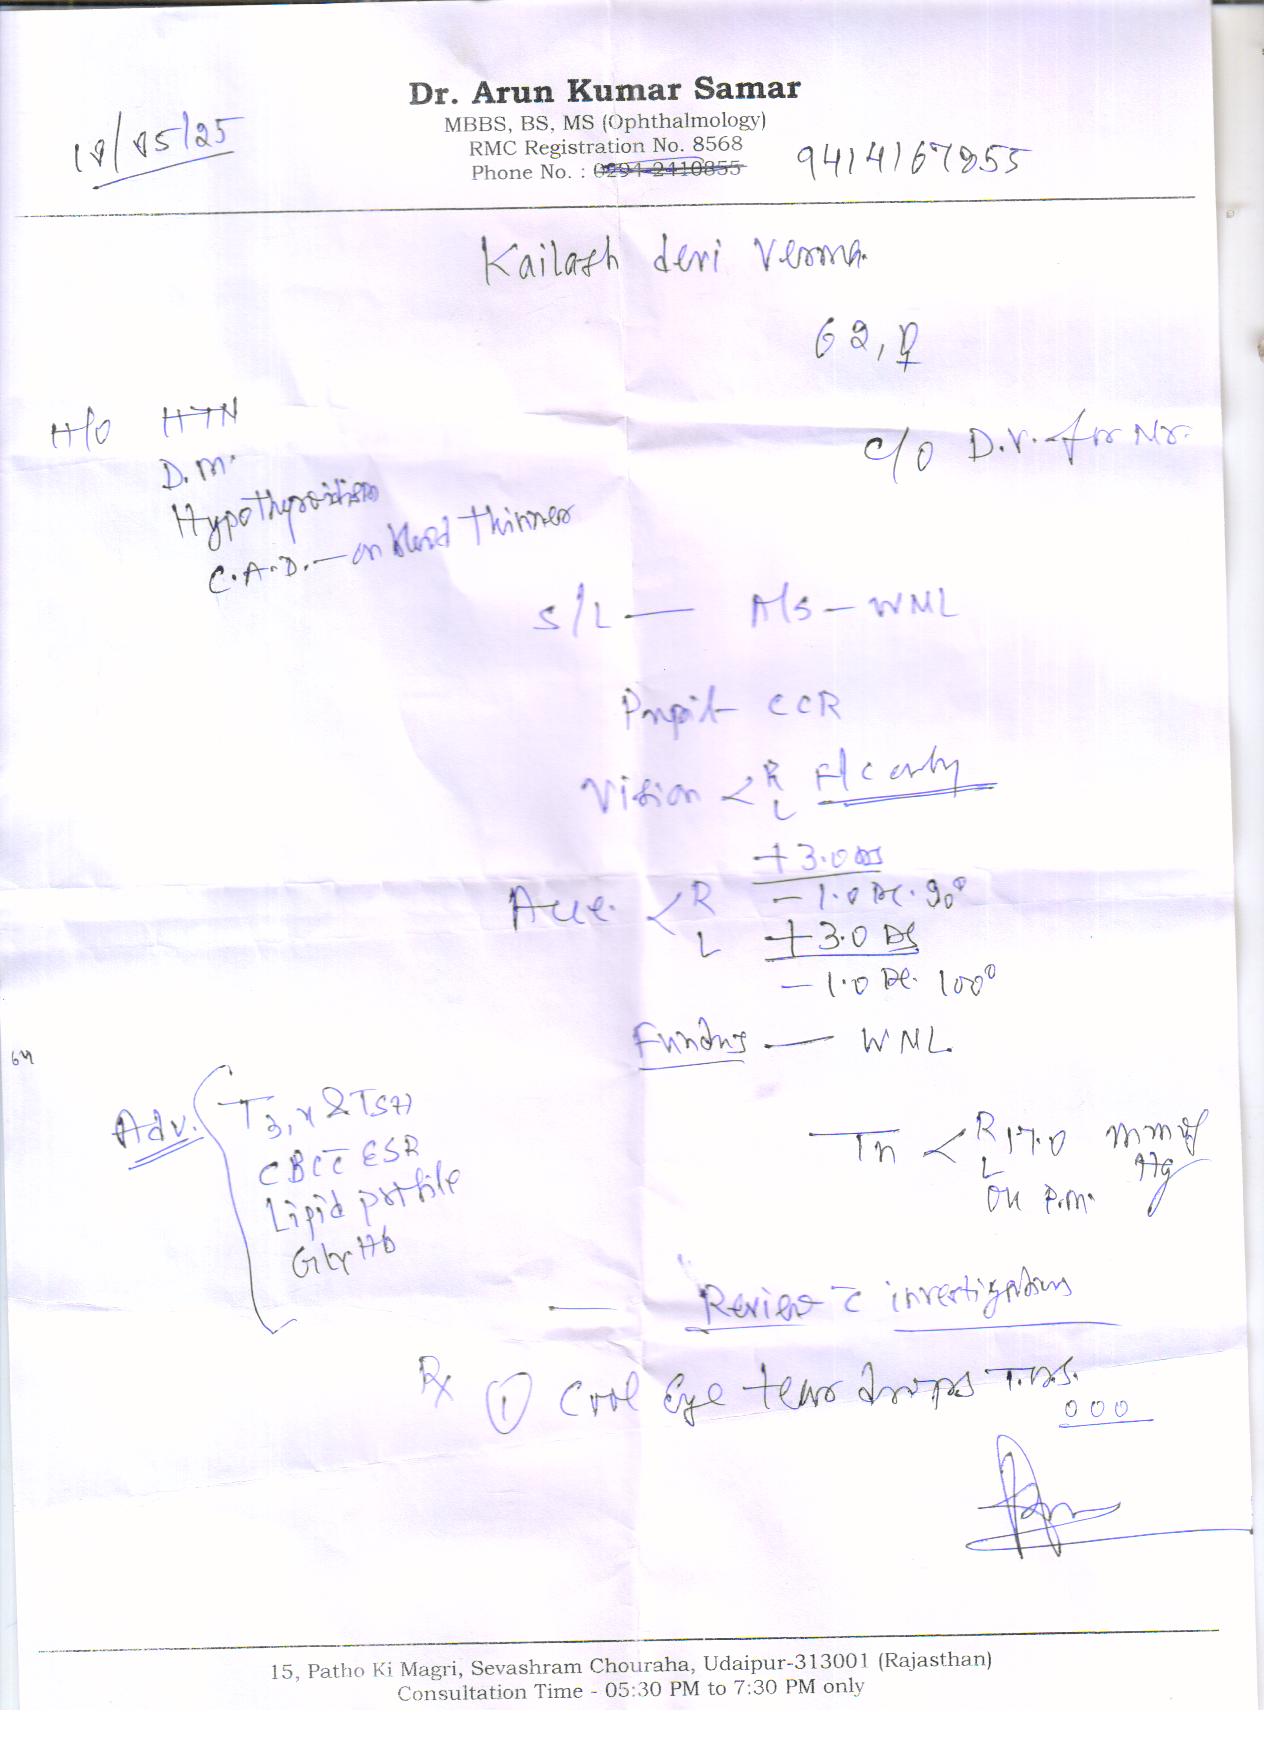 Dr. Arun Kumar Samar
MBBS, BS, MS (Ophthalmology)
RMC Registration No. 8568
Phone No. : 0294-2410855 9414167855
18/05/25
Kailash devi Verma
62, ♀
H/O HTN
D.M.
Hypothyroidism
C.A.D. — on blood thinner
C/O D.V. for Nr.
S/L — A/S — WNL
Pupil CCR
Vision < R F/C only
L
+3.0 DS
Acc. < R -1.0 DC. 90°
L +3.0 DS
-1.0 DC. 100°
Fundus — WNL
Adv. T3, 4 & TSH
CBC c̄ ESR
Lipid profile
Gly Hb
Tn < R 17.0 mm of Hg
L
on P.M.
— Review c̄ investigations
Rx ① Cool Eye tear drops T.D.S.
0 0 0
15, Patho Ki Magri, Sevashram Chouraha, Udaipur-313001 (Rajasthan)
Consultation Time - 05:30 PM to 7:30 PM only